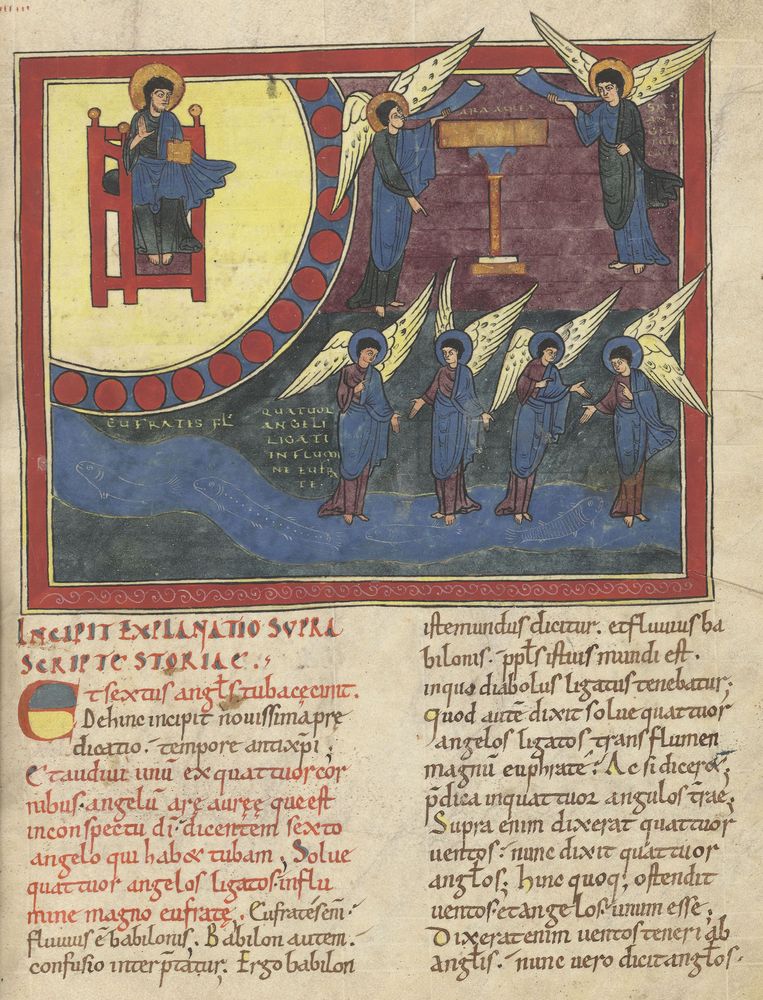 ARA AUREA
EUFRATIS FLƗ
QUATUOR
ANGELI
LIGATI
IN FLUMI
NE EUFRA
TE:
INCIPIT EXPLANATIO SUPRA
SCRIPTE STORIAE.
Et sextus angƚs tuba cecinit.
Dehinc incipit novissima pre
dicatio. tempore antixp̄i;
Et audivi unū ex quattuor cor
nibus. angelū arę aureę que est
in conspectu dī. dicentem sexto
angelo qui hab& tubam; Solue
quattuor angelos ligatos in flu
mine magno eufratę. Eufrates enī.
fluuius ē babilonis. Babilon autem.
confusio interp̄tatur. Ergo babilon
iste mundus dicitur. et fluuius ba
bilonis. ppƚs istius mundi est.
in quo diabolus ligatus tenebatur;
Quod autē dixit solue quattuor
angelos ligatos trans flumen
magnū euphrate: Ac si dicer&;
p̄dica in quattuor angulos t̄rae;
Supra enim dixerat quattuor
ventos. nunc dixit quattuor
angƚos; hinc quoq; ostendit
ventos. et angelos. unum esse;
Dixerat enim ventos teneri ab
angƚis. nunc vero dicit angƚos.